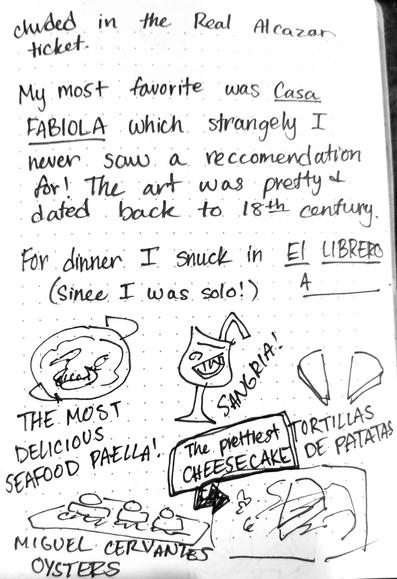 cluded in the Real Alcazar
ticket.
My most favorite was Casa
FABIOLA which strangely I
never saw a reccomendation
for! The art was pretty &
dated back to 18th century.
For dinner I snuck in El LIBRERO
(since I was solo!) A
THE MOST
DELICIOUS
SEAFOOD PAELLA!
SANGRIA!
The prettiest
CHEESECAKE
TORTILLAS
DE PATATAS
MIGUEL CERVANTES
OYSTERS